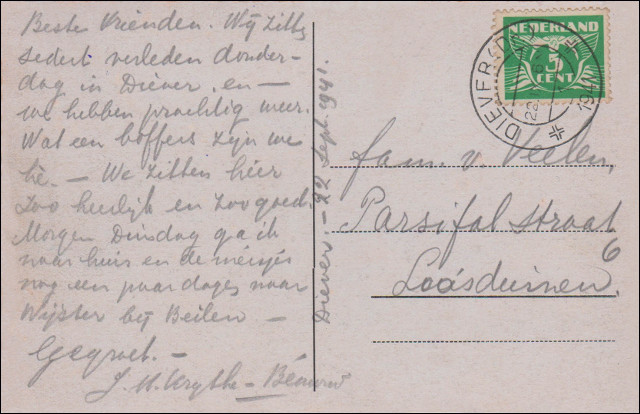 Beste Vrienden. Wij zitten
sedert verleden donder-
dag in Diever, en —
we hebben prachtig weer.
Wat een boffers zijn we
hè. — We zitten hier
zoo heerlijk en zoo goed.
Morgen Dinsdag ga ik
naar huis en de meisjes
nog een paar dagen naar
Wijster bij Beilen —
Gegroet. —
J. H.
Diever — 22 Sept. 1941.
NEDERLAND
5
CENT
DIEVER
22
1941
fam. v. Veelen,
Parsifal straat
6
Loosduinen.